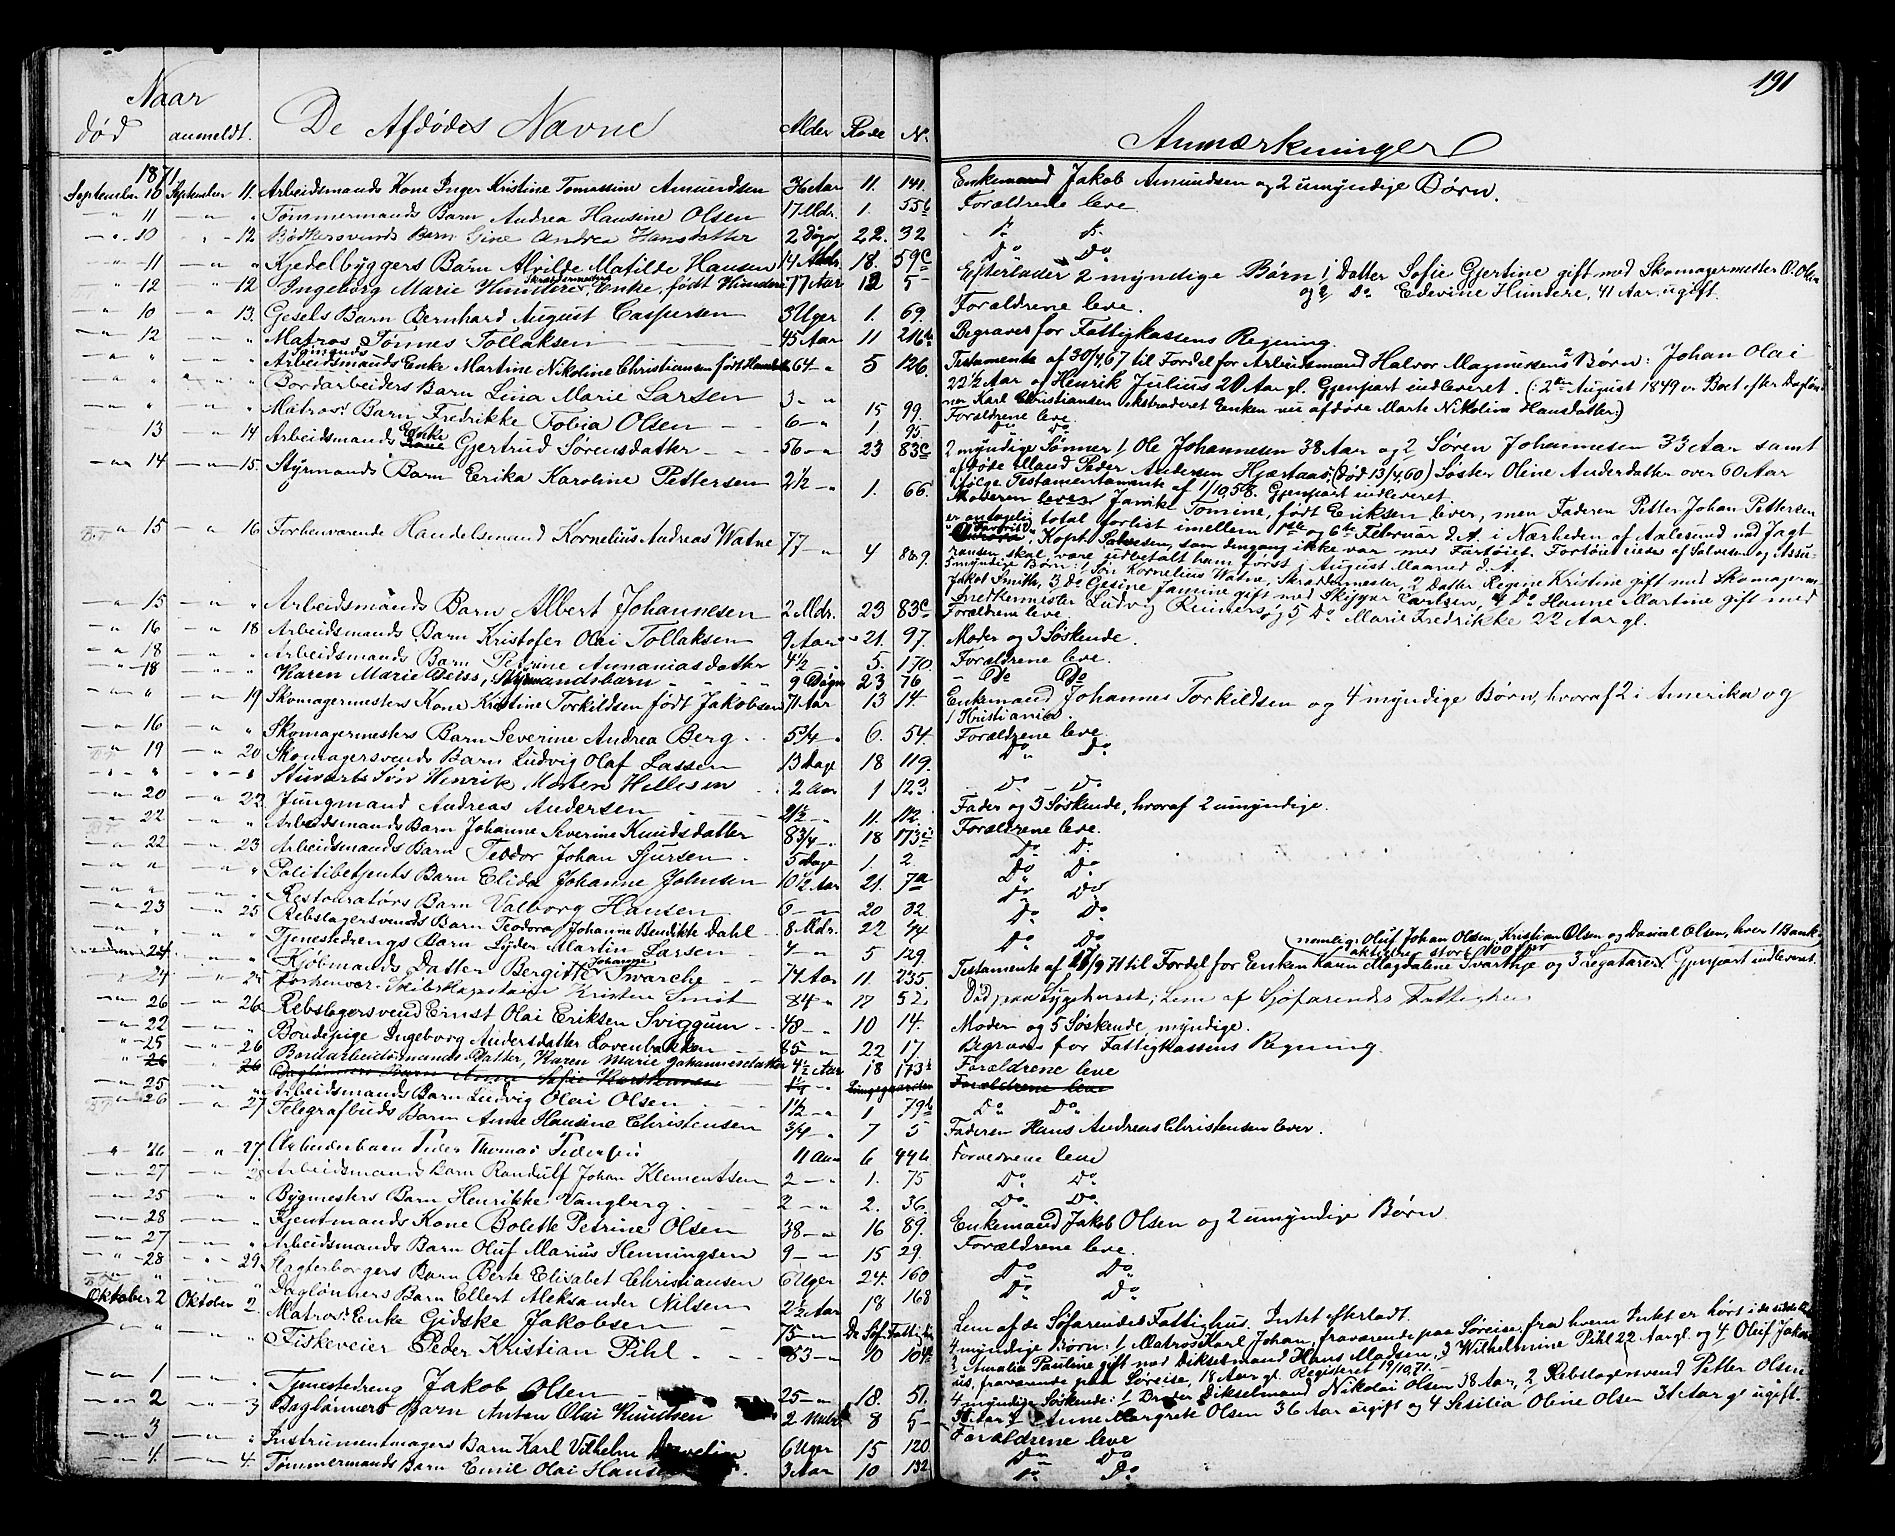 191
Naar
død anmeldt. De Afdødes Navne Alder Rode No Anmærkninger
1871
September 10 September 11. Arbeidsmands Kone Inger Kristine Tomassine Amundsen 36 Aar 11. 141. Enkemand Jakob Amundsen og 2 umyndige Børn.
" 11 " " Tømmermands Barn Andrea Hansine Olsen 17 Mdr. 1. 55b Forældrene leve
" 10 " 12 Bødkersvends Barn Gine Andrea Hansdatter 2 Døgn 22. 32 Do Do
" 11 " " Kjedelbyggers Barn Alvilde Matilde Hansen 14 Mdr. 18. 59c Do Do
" 12 " 12 Ingeborg Marie Hundere, Enke, født Hundere 77 Aar 12 5 Efterlader 2 myndige Børn 1 Datter Sofie Gjertine gift med Skomagermester O. Olsen
og 2 Do Edevine Hundere, 41 Aar, ugift.
" 10 " 13. Gesels Barn Bernhard August Caspersen 3 Uger 1. 69. Forældrene leve.
" 12 " " Matros Tønnes Tollaksen 45 Aar 11 216b Begraves for Fattigkassens Regning.
" " " " Arbeidsmands Enke Martine Nikoline Christiansen født 64 " 5 126. Testamente af 30/4 67 til Fordel for Arbeidsmand Halvor Magnussens 2 Børn: Johan Olai
22½ Aar og Henrik Julius 20 Aar gl. Gjenpart indleveret. (2den August 1849 er Boet efter
Karl Christiansen ekstraderet Enken nu afdøde Marte Nikoline Hansdatter.)
" " " " Bordarbeiders Barn Lina Marie Larsen 3 " 15 99. Forældrene leve.
" " " " Matros. Barn Fredrikke Tobia Olsen 6 " 1. 95 Do Do
" 13 " 14 Arbeidsmands Enke Gjertrud Sørensdatter 56 " 23 83c 2 myndige Sønner 1 Ole Johannesen 38 Aar og 2 Søren Johannesen 33 Aar samt
afdøde Mand Peder Andersen Hjærtaas (død 13/4 60) Søster Oline Andersdatter over 60 Aar
ifølge Testamentamente af 1/10 58. Gjenpart indleveret.
" 14 " 15. Styrmands Barn Erika Karoline Pettersen 2½ " 1. 66. Moderen Janvike Tomine, født Eriksen lever, men Faderen Petter Johan Pettersen
er antagelig total forlist imellem 1ste og 6te Februar d. A. i Nærheden af Aalesund med Jagt
Kapt. Salvesen, som dengang ikke var med Fartøiet. Fartøiet eiedes af Salvesen og Assu-
ransen skal være udbetalt ham først i August Maaned d. A.
" 15 " 16 Forhenværende Handelsmand Kornelius Andreas Watne 77 " 4 889. 5 myndige Børn: 1 Søn Kornelius Watne, Skræddermester, 2 Datter Regine Kristine gift med Skomager
Jakob Smith, 3 Do Gesine Jamine gift med Skipper Carlsen, 4 Do Hanne Martine gift med
Snedkermester Ludvig Reimers og 5 Do Marie Fredrikke 22 Aar gl.
" 15 " " Arbeidsmands Barn Albert Johannesen 2 Mdr. 23 83c Forældrene leve
" 16 " 18 Arbeidsmands Barn Kristofer Olai Tollaksen 9 Aar 21. 97. Moder og 3 Søskende.
" 18 " " Arbeidsmands Barn Petrine Annaniasdatter 4½ " 5. 170 Forældrene leve.
" 18 " " Karen Marie Beiss, Styrmandsbarn 9 Døgn 23 76 Do Do
" " " 19 Skomagermesters Kone Kristine Torkildsen født Jakobsen 71 Aar 13 14. Enkemand Johannes Torkildsen og 4 myndige Børn, hvoraf 2 i Amerika og
1 Kristiania.
" 16 " " Skomagermesters Barn Severine Andrea Berg 5¾ " 6. 54. Forældrene leve.
" 19 " 20 Skomagersvends Barn Ludvig Olaf Lassen 13 Dage 18 119. Do Do
" " " " Stuvarts Søn Henrik Morten Hellesen 2 Aar 1 123 Do Do
" 20 " 22 Jungmand Andreas Andersen 21½ " 11. 112. Fader og 3 Søskende, hvoraf 2 umyndige.
" 22 " " Arbeidsmands Barn Johanne Severine Knudsdatter 8¾ " 18 173c Forældrene leve.
" 22 " 23 Arbeidsmands Barn Teodor Johan Sjursen 5 Dage 1. 2. Do Do
" " " " Politibetjents Barn Elida Johanne Johnsen 10½ Aar 21. 7a Do Do
" " " " Restauratørs Barn Valborg Hansen 6 " 20 32. Do Do
" 23 " 25 Rebslagersvends Barn Teodora Johanne Bendikte Dahl 8 Mdr. 22 44 Do Do
" " " " Tjenestedrengs Barn Lyder Martin Larsen 4 " 5 129. Do Do
namlig: Oluf Johan Olsen, Kristian Olsen og Daniel Olsen, hver 1 Bank-
aktie stor 100 Spd
" 24 " " Kjøbmands Datter Bergitte Johanne Svarthe 74 Aar 11. 235. Testamente af 11/9 71 til Fordel for Enken Karen Magdalene Svarthe og 3 Legatarer. Gjenpart indleveret.
" 24 " 25 Forhenvær. Kristen Smit 84 " 12 52. Død paa Sygehuset; Lem af Søfarendes Fattighus
" 26 " 26 Rebslagersvend Ernst Olai Eriksen Sviggum 48 " 10 14. Moder og 5 Søskende, myndige.
" 22 " " Bondepige Ingeborg Andersdatter Lovenbakken 85 " 22 17. Begraves for Fattigkassens Regning.
" 25 " 26 Bordarbeidsmands Datter, Karen Marie Johannesdatter 4½ Aar 18 173b Forældrene leve
" 26 " 26 Daglønners Barn Anne Sofie Karstensen 1¼ " Forældrene leve
" 25 " " Arbeidsmands Barn Ludvig Olai Olsen 1½ " 1 79b Do Do
" 26 " 27 Telegrafbuds Barn Anne Hansine Christensen ¾ " 7 5 Faderen Hans Andreas Christensen lever.
" 26 " 27. Arbeiderbarn Peder Thomas Pedersen 11 Aar 6 44b Forældrene leve
" 27 " 28 Arbeidsmands Barn Randulf Johan Klementsen 2 " 1. 75 Do Do
" 25 " " Bygmesters Barn Henrikke Vangberg 2 " 2. 36. Do Do
" 28 " " Kjentmands Kone Bolette Petrine Olsen 38 " 16 89. Enkemand Jakob Olsen og 2 umyndige Børn
" 27 " " Arbeidsmands Barn Oluf Marius Henningsen 9 " 15 29. Forældrene leve.
" 28 " 29 Barn Berte Elisabet Christiansen 6 Uger 24. 160 Do Do
" " " " Daglønners Barn Ellert Aleksander Nilsen 2½ Aar 18 168 Do Do
Oktober 2 Oktober 2. Matros. Enke Gidske Jakobsen 75 " De Søf. Fattighus Lem af de Søfarendes Fattighus. Intet efterladt.
" " " " Fiskeveier Peder Kristian Pihl 83 " 10 104a 4 myndige Børn: 1 Matros Karl Johan, fraværende paa Søreise, fra hvem Intet er hørt i de sidste
3 Amalia Pauline gift med Dikselmand Hans Madsen, 3 Wilhelmine Pihl 22 Aar gl. og 4 Oluf Jakob-
us, fraværende paa Søreise, 18 Aar gl. Registeret 19/10 71.
" 1 " " Tjenestedreng Jakob Olsen 25 " 18. 51. 4 myndige Søskende: 1 Broder Dikselmand Nikolai Olsen 38 Aar, 2 Rebslagersvend Petter Olsen
Anne Margrete Olsen 36 Aar ugift og 4 Sesilia Oline Olsen 31 Aar gl ugift.
" 2 " 3 Daglønners Barn Anton Olai Knudsen 2 Mdr. 8 5 Forældrene leve
" 3 " " Instrumentmagers Barn Karl Vilhelm 6 Uger 15 120 Do Do
" 4. " 4. Tømmermands Barn Emil Olai Hansen 3 Aar 10 132 Do Do